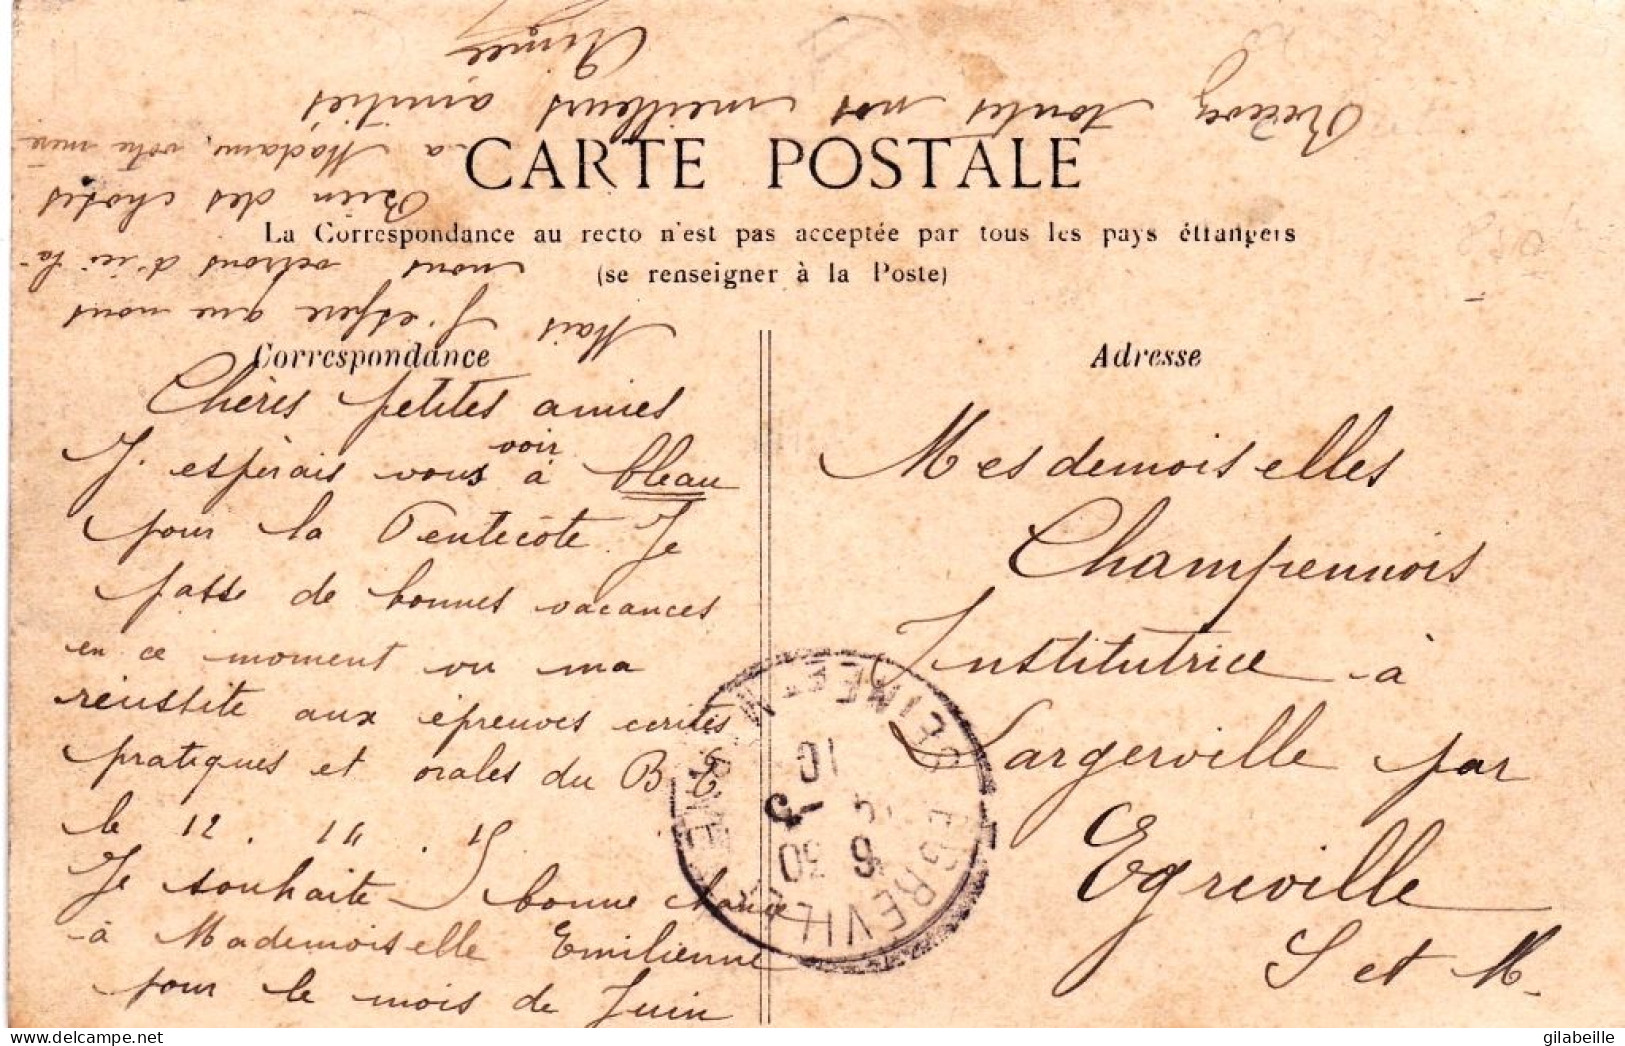 CARTE POSTALE
La Correspondance au recto n'est pas acceptée par tous les pays étrangers
(se renseigner à la Poste)
Correspondance
Chères petites amies
J'espérais vous voir à bleau
pour la Pentecôte. Je
passe de bonnes vacances
en ce moment vu ma
réussite aux épreuves écrites
pratiques et orales du B E
le 12. 14. 15
Je souhaite bonne chance
à Mademoiselle Emilienne
pour le mois de Juin
Mais j'espère que nous
nous verrons d'ici là
Bien des choses
à Madame, votre mère
Recevez toutes nos meilleurs amitiés
Aimée
Adresse
Mesdemoiselles
Champennois
Institutrice à
Largerville par
Egreville
S et M.
EGREVILLE
SEINE ET MARNE
gilabeille